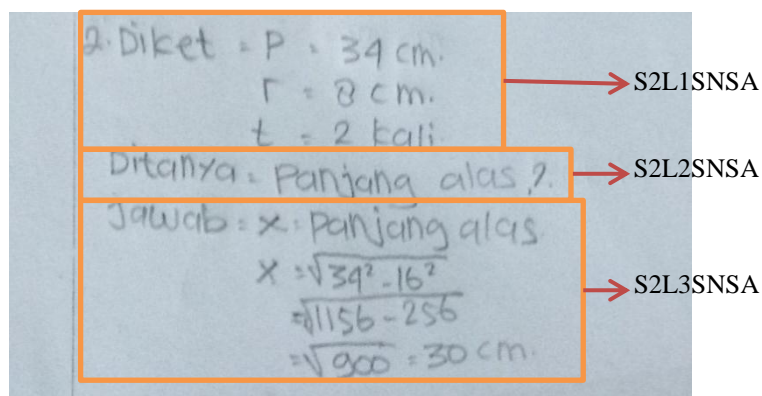 2. Diket = P = 34 cm.
r = 8 cm.
t = 2 kali.
S2L1SNSA
Ditanya = Panjang alas ?.
S2L2SNSA
Jawab = x = panjang alas.
x = √34² - 16²
= √1156 - 256
= √900 = 30 cm.
S2L3SNSA